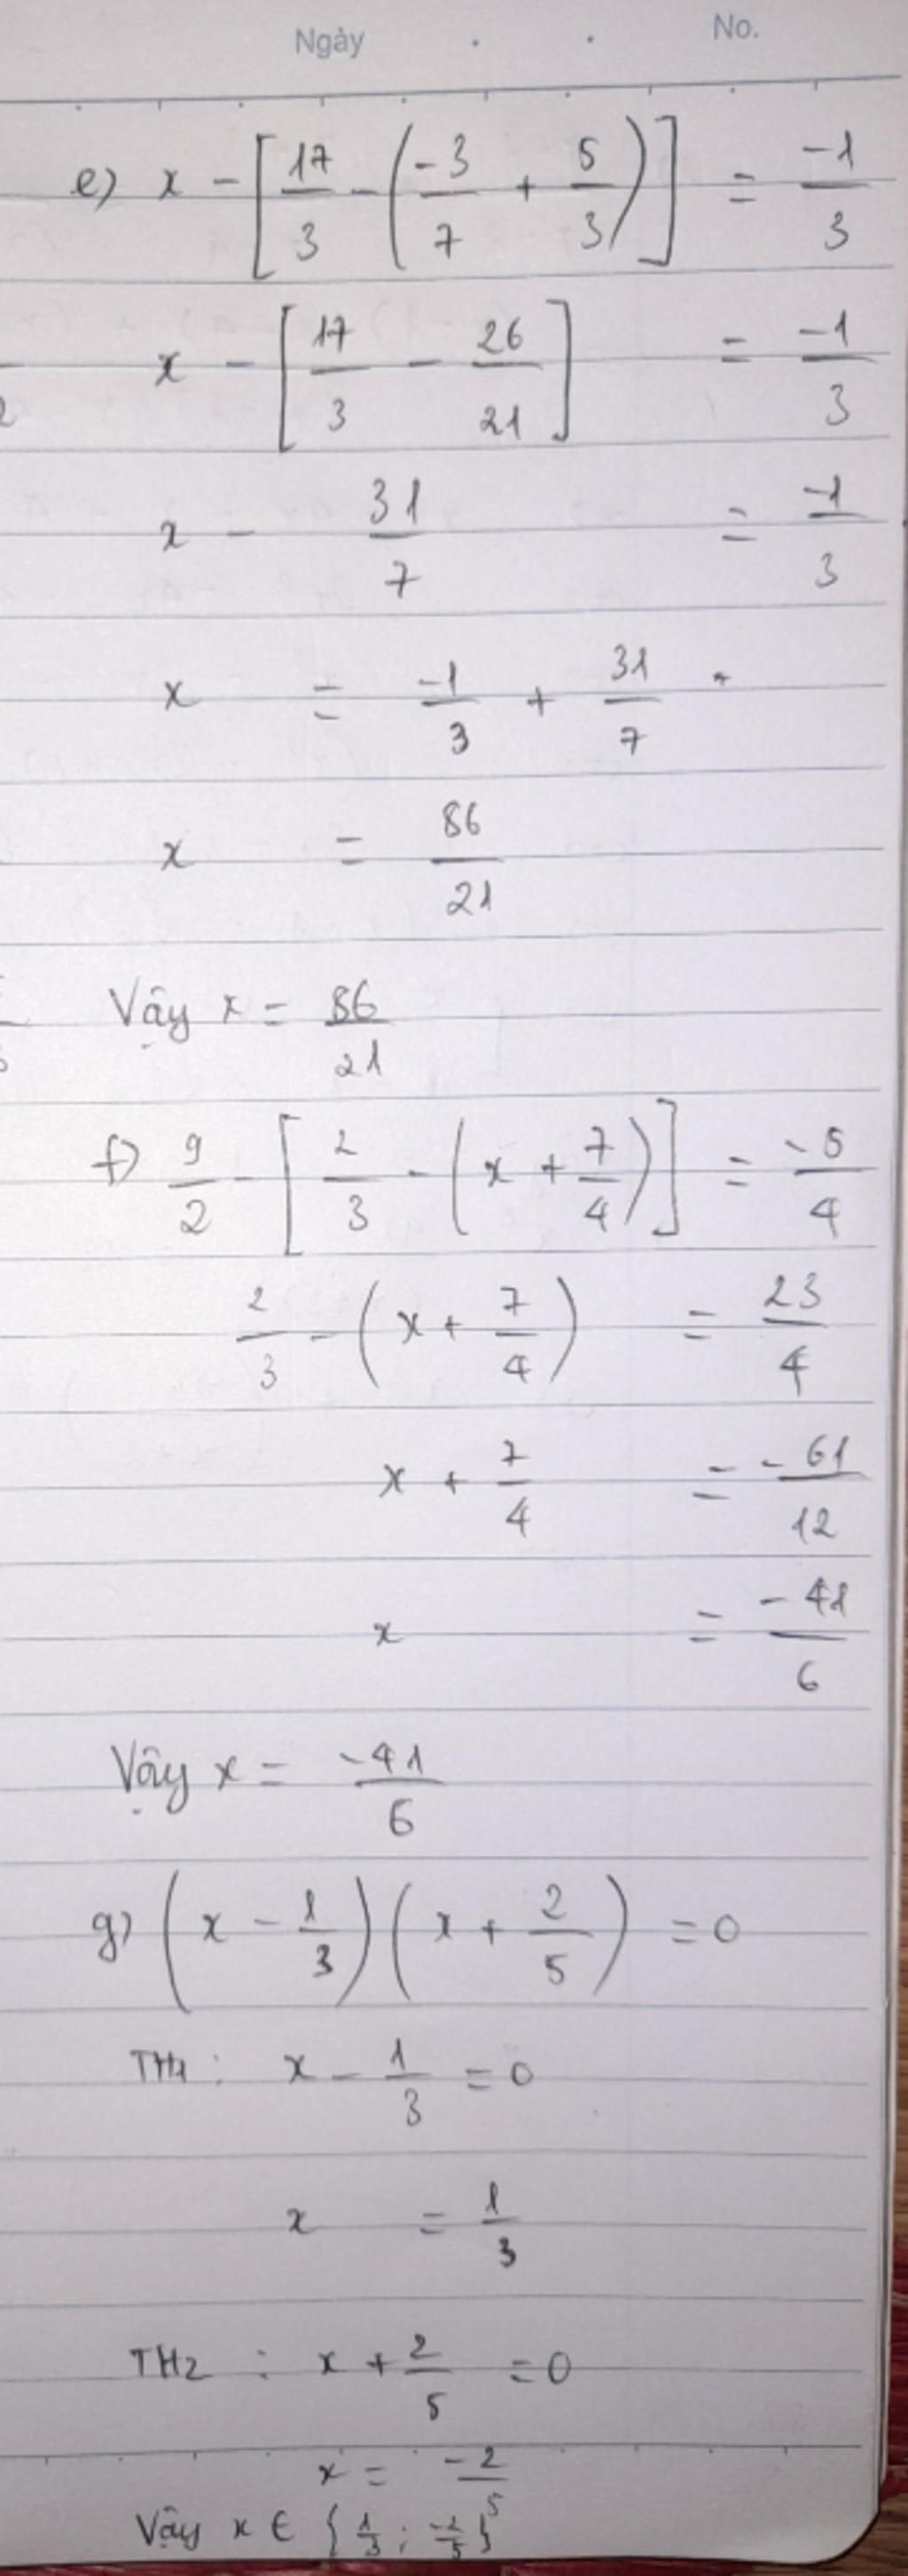 Ngày . . No.
e) x - [17/3 - (-3/7 + 5/3)] = -1/3
x - [17/3 - 26/21] = -1/3
x - 31/7 = -1/3
x = -1/3 + 31/7
x = 86/21
Vậy x = 86/21
f) 9/2 - [2/3 - (x + 7/4)] = -5/4
2/3 - (x + 7/4) = 23/4
x + 7/4 = -61/12
x = -41/6
Vậy x = -41/6
g) (x - 1/3)(x + 2/5) = 0
TH1: x - 1/3 = 0
x = 1/3
TH2: x + 2/5 = 0
x = -2/5
Vậy x ∈ {1/3; -2/5}